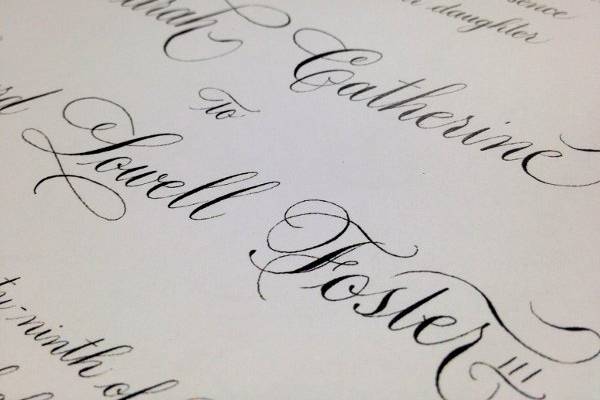 sence
daughter
arah Catherine
To
rd Lowell Foster III
ty-ninth of